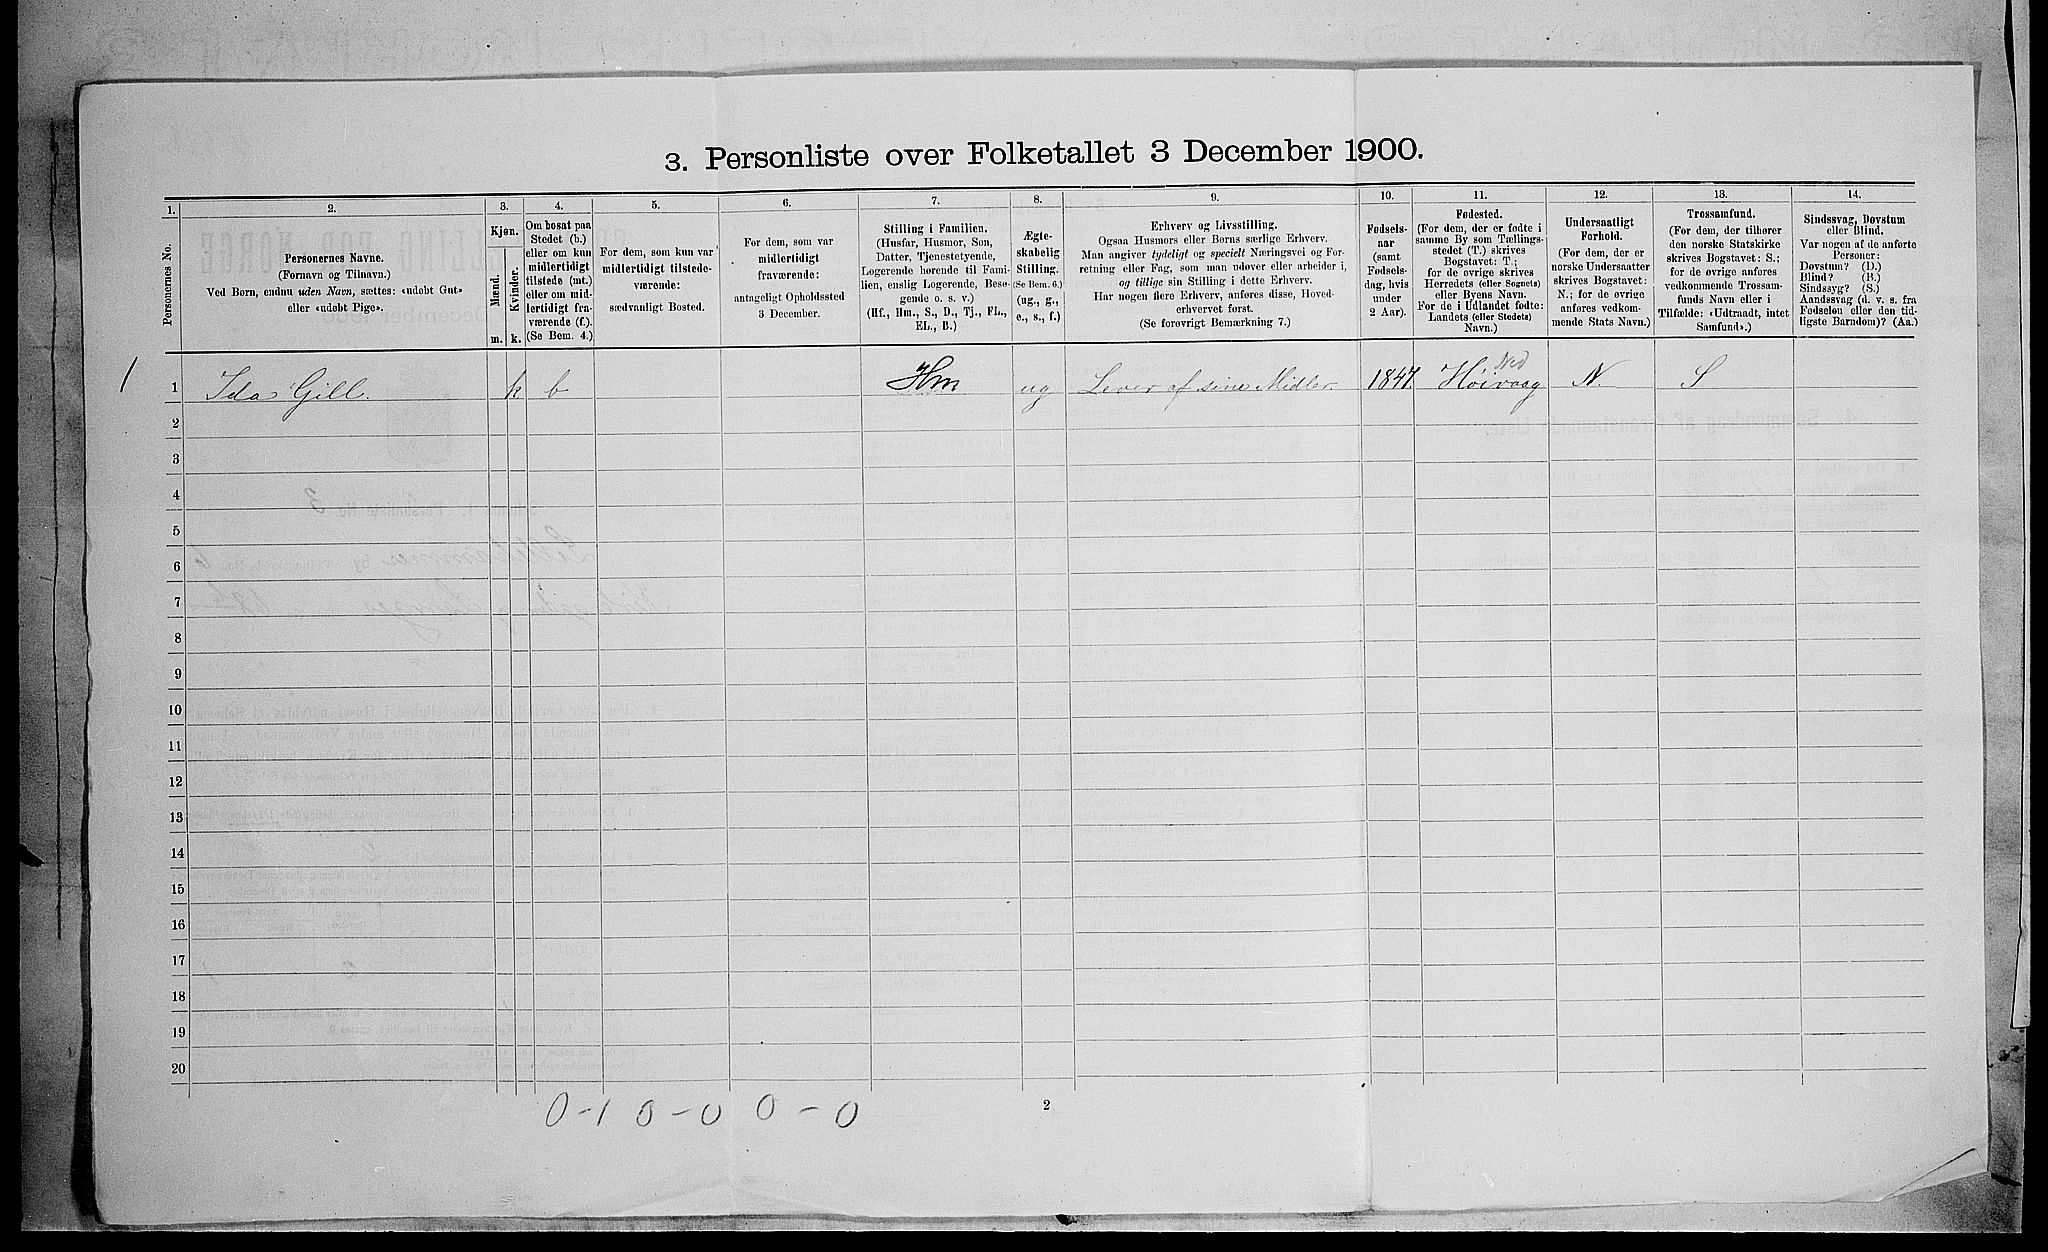 3. Personliste over Folketallet 3 December 1900.
1. 2. 3. 4. 5. 6. 7. 8. 9. 10. 11. 12. 13. 14.
Personernes No.
Personernes Navne.
(Fornavn og Tilnavn.)
Ved Børn, endnu uden Navn, sættes: «udøbt Gut»
eller «udøbt Pige».
Kjøn.
Mænd.
Kvinder.
m. k.
Om bosat paa
Stedet (b.)
eller om kun
midlertidigt
tilstede (mt.)
eller om mid-
lertidigt fra-
værende (f.).
(Se Bem. 4.)
For dem, som kun var
midlertidigt tilstede-
værende:
sædvanligt Bosted.
For dem, som var
midlertidigt
fraværende:
antageligt Opholdssted
3 December.
Stilling i Familien.
(Husfar, Husmor, Søn,
Datter, Tjenestetyende,
Logerende hørende til Fami-
lien, enslig Logerende, Besø-
gende o. s. v.)
(Hf., Hm., S., D., Tj., FL.,
EL., B.)
Ægte-
skabelig
Stilling.
(Se Bem. 6.)
(ug., g.,
e., s., f.)
Erhverv og Livsstilling.
Ogsaa Husmors eller Børns særlige Erhverv.
Man angiver tydeligt og specielt Næringsvei og For-
retning eller Fag, som man udøver eller arbeider i,
og tillige sin Stilling i dette Erhverv.
Har nogen flere Erhverv, anføres disse, Hoved-
erhvervet først.
(Se forøvrigt Bemærkning 7.)
Fødsels-
aar
(samt
Fødsels-
dag, hvis
under
2 Aar).
Fødested.
(For dem, der er fødte i
samme By som Tællings-
stedet (T.) skrives
Bogstavet: T.;
for de øvrige skrives
Herredets (eller Sognets)
eller Byens Navn.
For de i Udlandet fødte:
Landets (eller Stedets)
Navn.)
Undersaatligt
Forhold.
(For dem, der er
norske Undersaatter
skrives Bogstavet:
N.; for de øvrige
anføres vedkom-
mende Stats Navn.)
Trossamfund.
(For dem, der tilhører
den norske Statskirke
skrives Bogstavet: S.;
for de øvrige anføres
vedkommende Trossam-
funds Navn eller i
Tilfælde: «Udtraadt, intet
Samfund».)
Sindssvag, Døvstum
eller Blind.
Var nogen af de anførte
Personer:
Døvstum? (D.)
Blind? (B.)
Sindssyg? (S.)
Aandssvag (d. v. s. fra
Fødselen eller den tid-
ligste Barndom)? (Aa.)
Ned
1 1 Ida Gill. k b Hm ug Lever af sine Midler 1847 Høivaag N. S
2
3
4
5
6
7
8
9
10
11
12
13
14
15
16
17
18
19
20
0-1 0-0 0-0
2